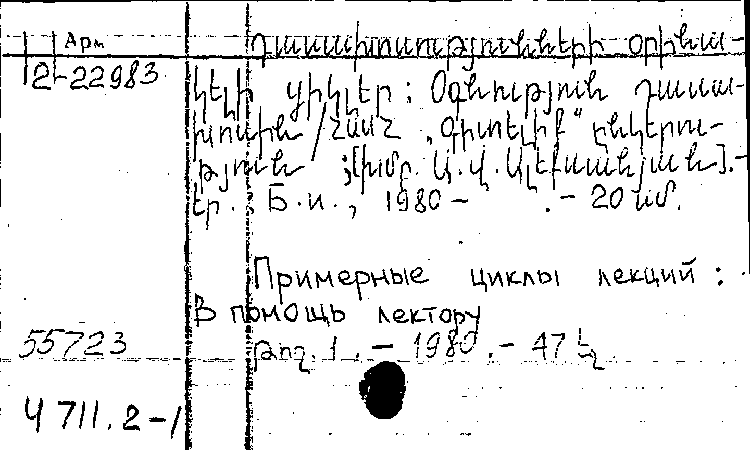 Арм
Դասախոսությունների օրինա-
2-22983
կելի ցիկլեր : Օգնություն դասա-
խոսին / ՀՍՍՀ „Գիտելիք“ ընկերու-
թյուն ; [խմբ. Ա. Վ. Ալեքսանյան].-
Եր. : Б.и., 1980 - . - 20 սմ.
Примерные циклы лекций :
В помощь лектору
55723
թող. 1. - 1980. - 47 էջ
Ч 711.2-1